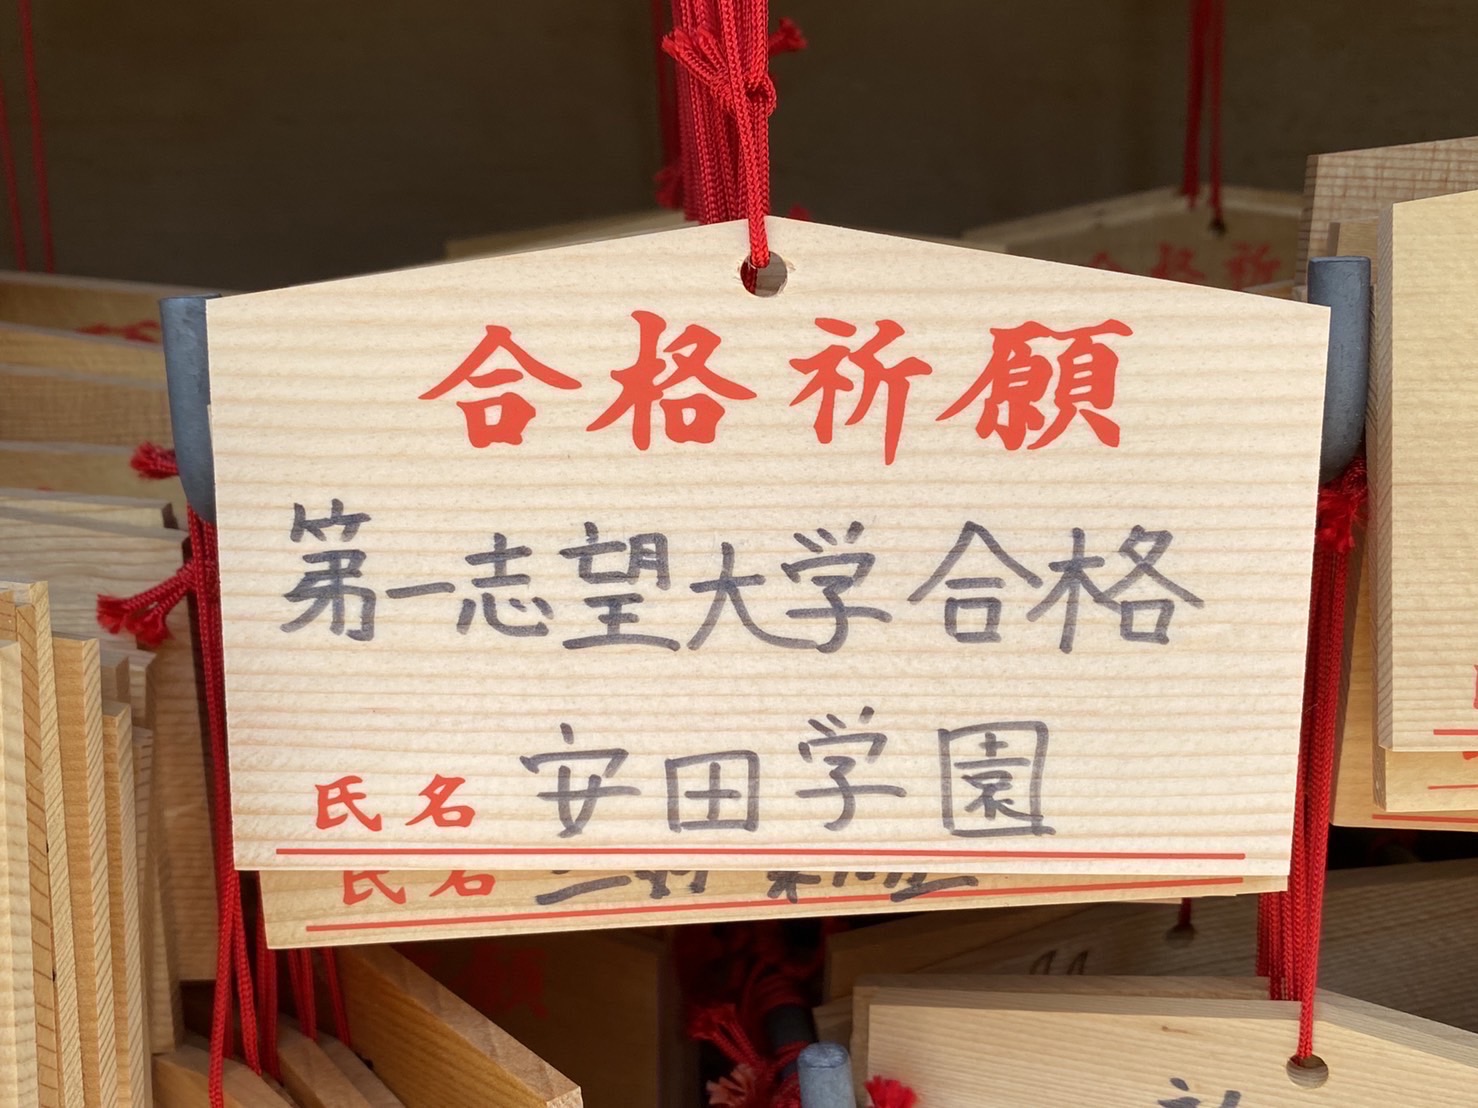 合格祈願
第一志望大学合格
氏名 安田学園
氏名
合格祈